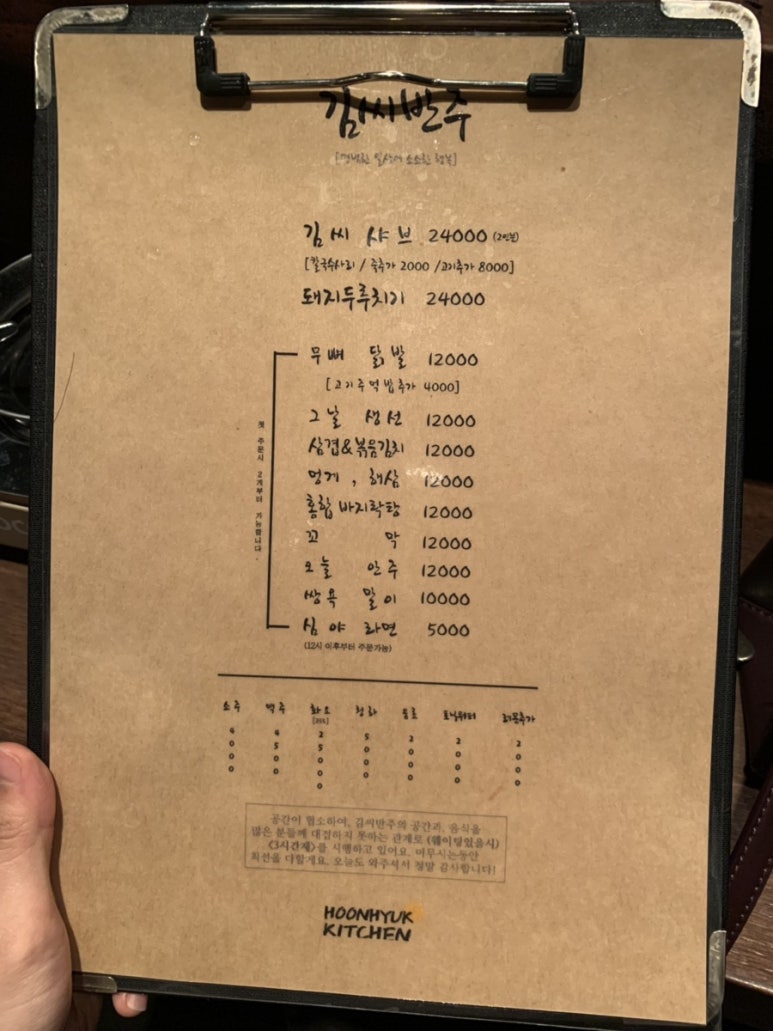 김씨반주
[평범한 일상에 소소한 행복]
김씨 샤브 24000 (2인분)
[칼국수사리 / 죽추가 2000 /고기추가 8000]
돼지두루치기 24000
무뼈 닭발 12000
[고기주먹밥추가 4000]
그날 생선 12000
삼겹&볶음김치 12000
멍게 , 해삼 12000
홍합 바지락탕 12000
꼬막 12000
오늘 안주 12000
쌍욕 말이 10000
심야 라면 5000
(12시 이후부터 주문가능)
첫 주문시 2개부터 가능합니다.
소주 맥주 화요 청하 음료 토닉워터 레몬추가
4 4 2 5 2 2 2
0 5 5 0 0 0 0
0 0 0 0 0 0 0
0 0 0 0 0 0 0
0
공간이 협소하여, 김씨반주의 공간과, 음식을
많은 분들께 대접하지 못하는 관계로 (웨이팅있을시)
《3시간제》를 시행하고 있어요. 머무시는동안
최선을 다할게요. 오늘도 와주셔서 정말 감사합니다!
HOONHYUK
KITCHEN